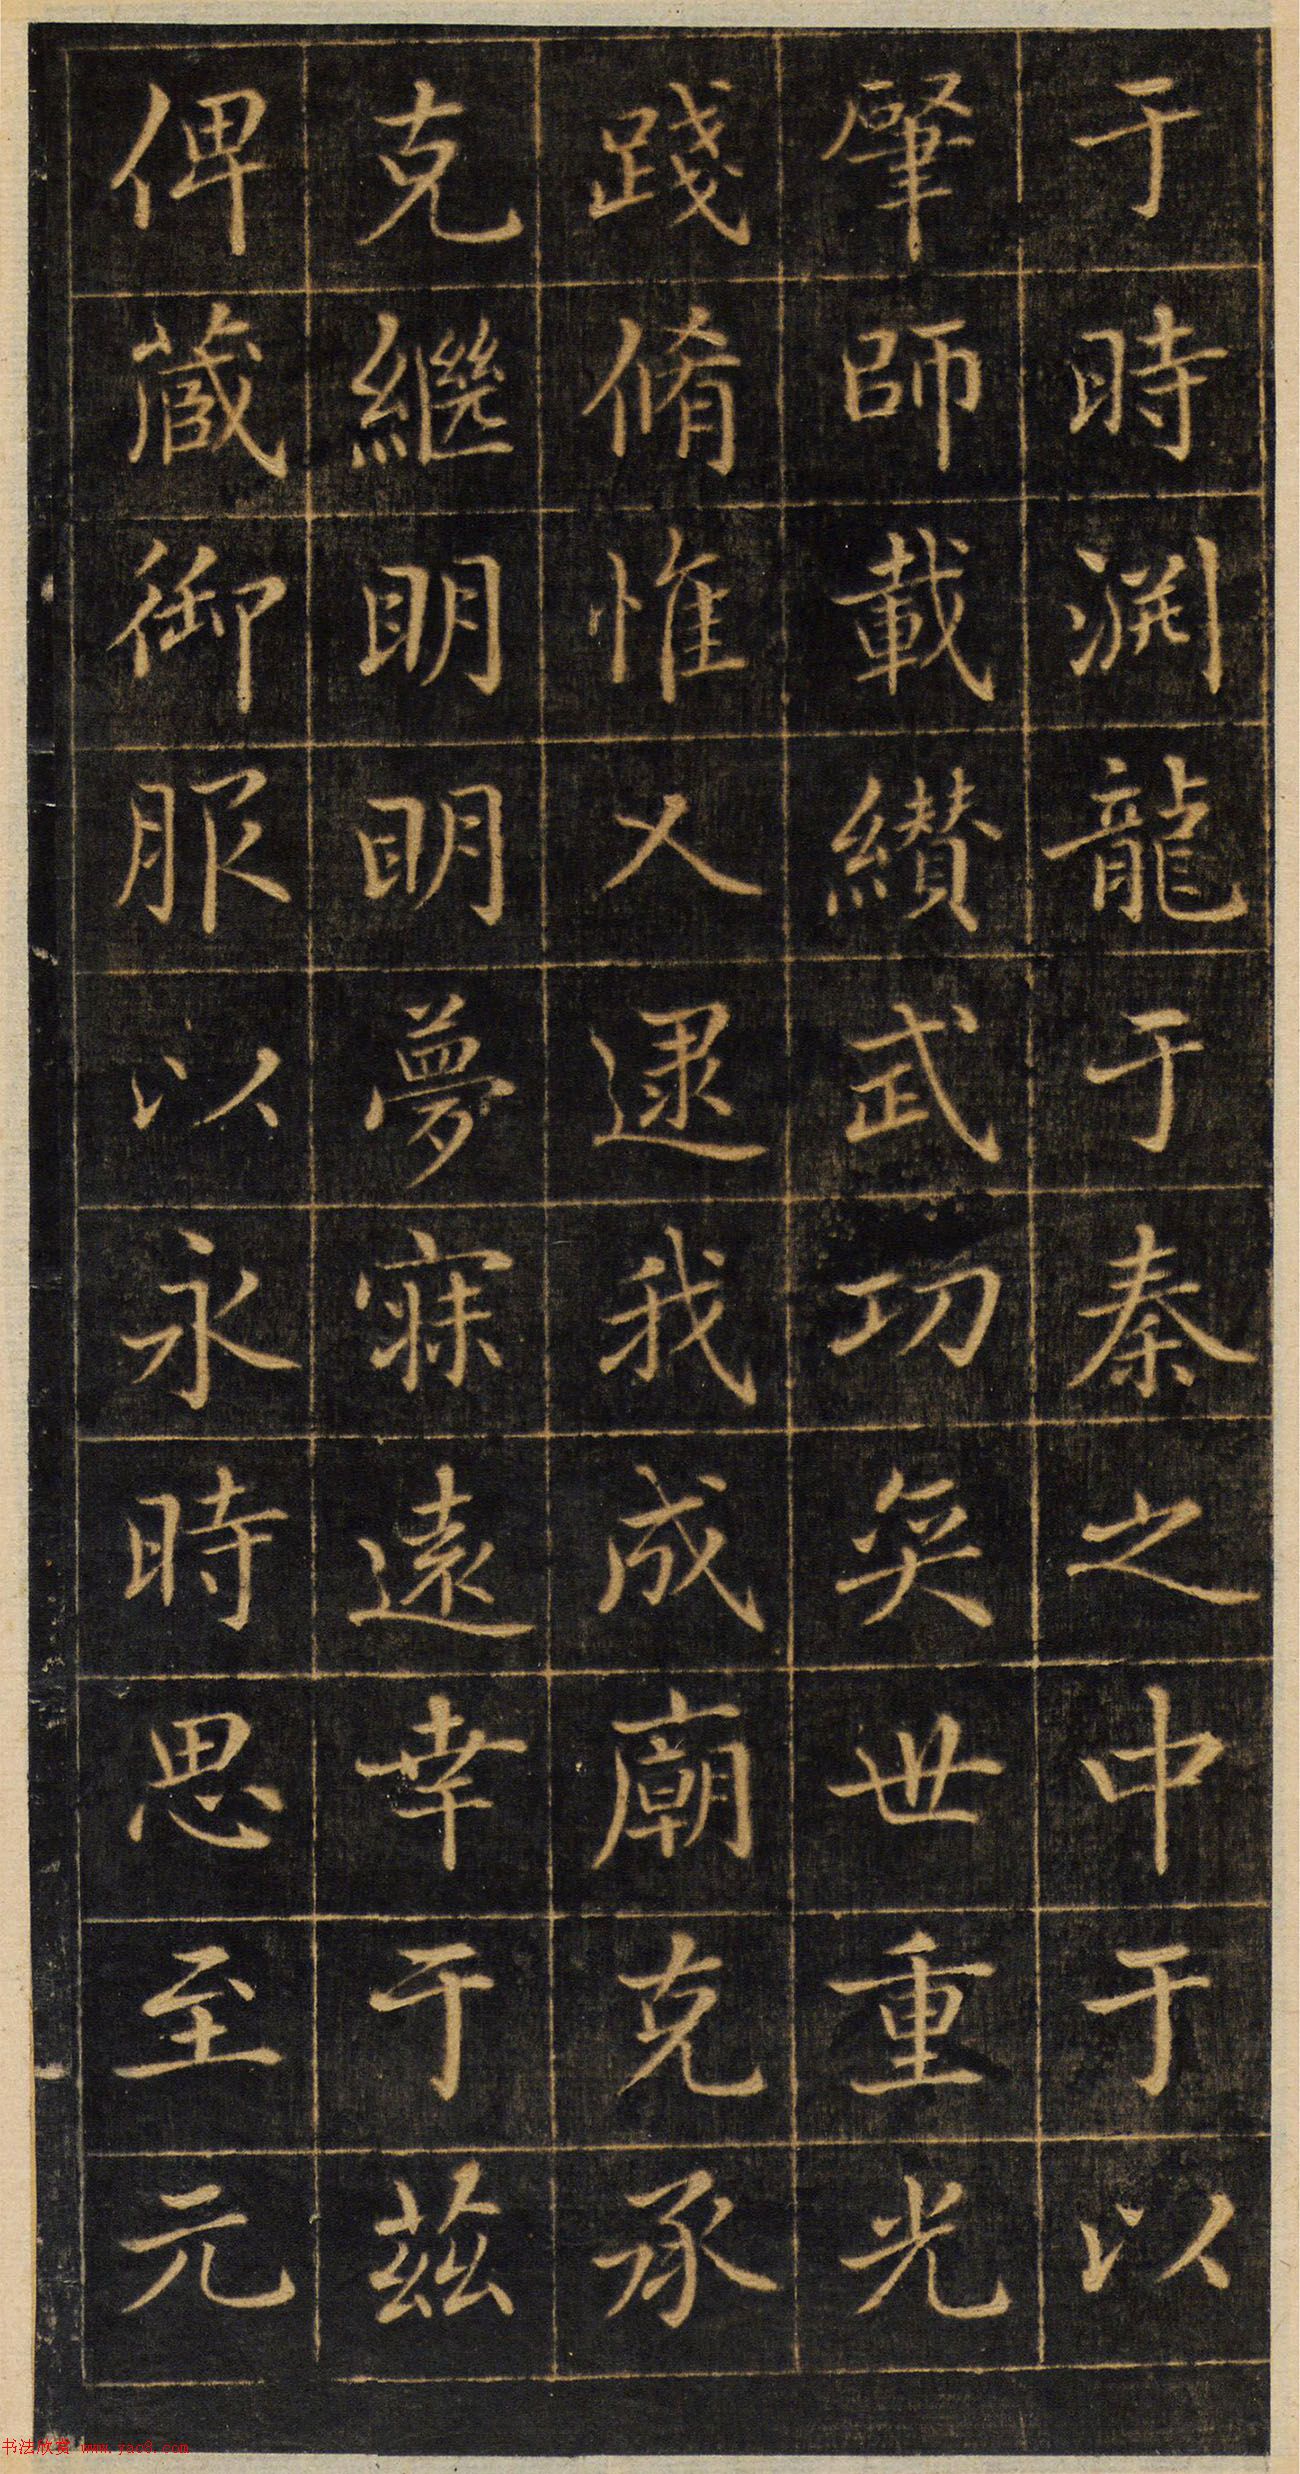 于時渊龍于秦之中于以
肇師載纘武功奕世重光
踐脩惟人逮我成廟克承
克繼明明夢寐遠幸于茲
俾蕆御服以永時思至元
书法欣赏 www.yac8.com